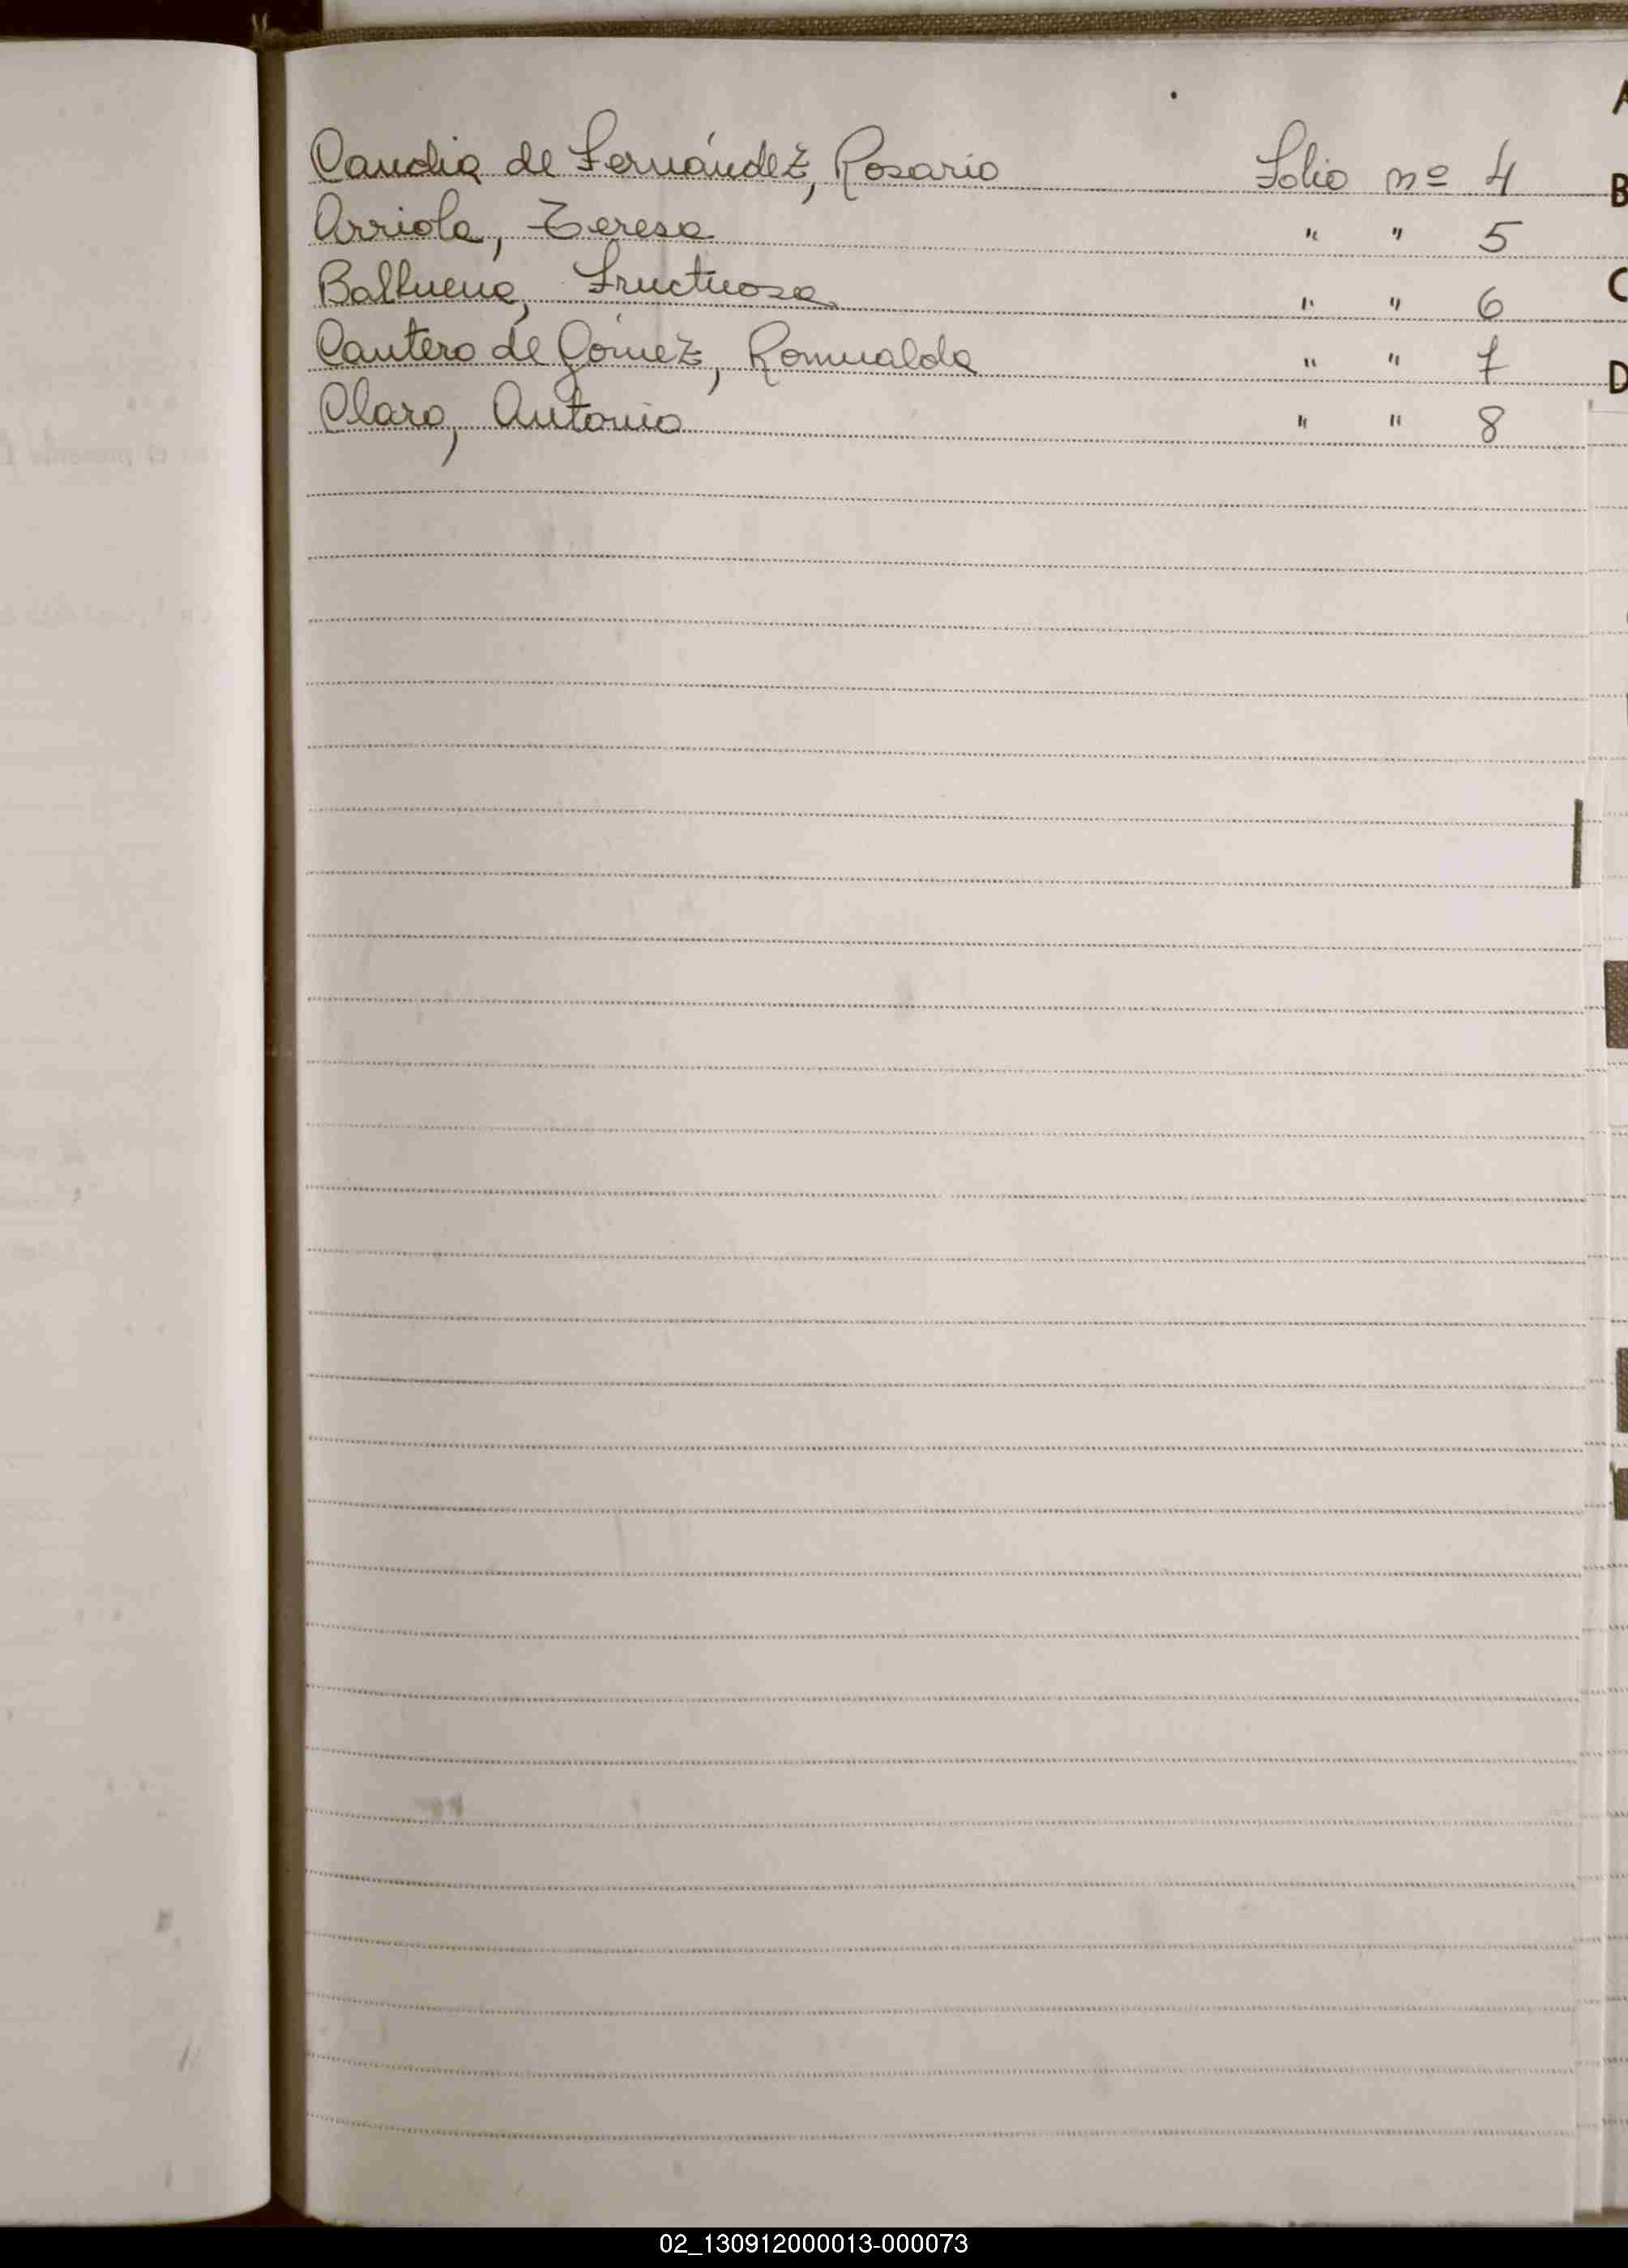 Candia de Fernández, Rosario Folio nº 4
Arriola, Teresa " " 5
Balbuena, Fructuosa " " 6
Cantero de Gómez, Romualda " " 7
Claro, Antonio " " 8
A
B
C
D
02_130912000013-000073